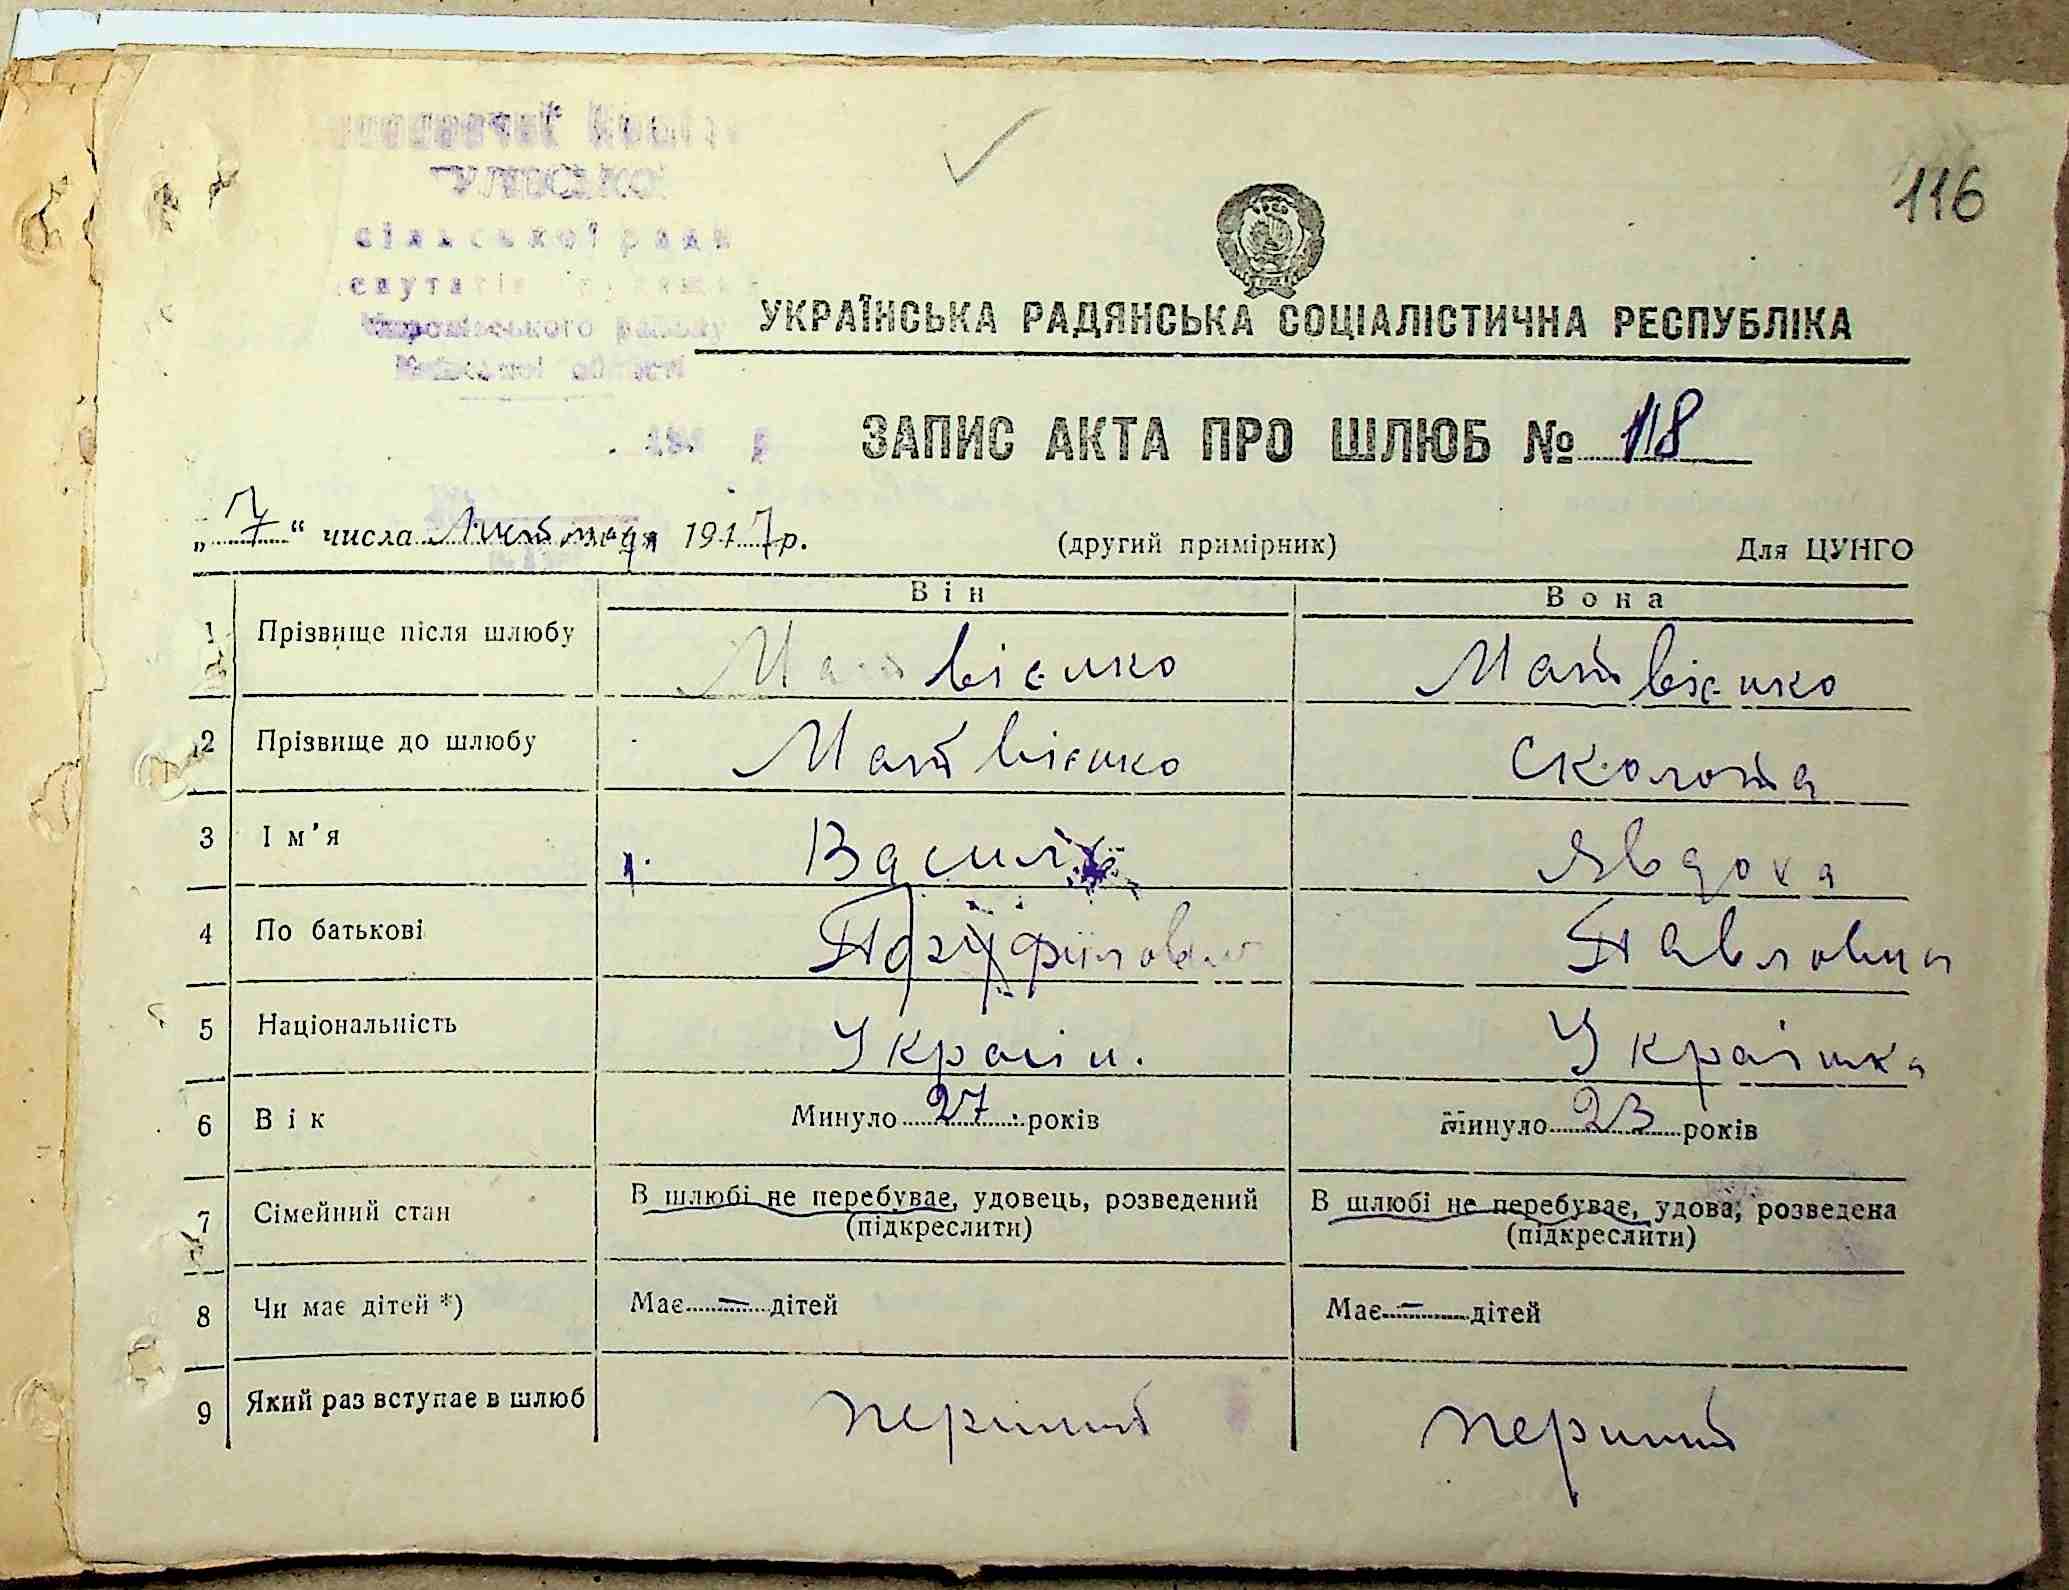 116
сільської ради
району
області
УКРАЇНСЬКА РАДЯНСЬКА СОЦІАЛІСТИЧНА РЕСПУБЛІКА
ЗАПИС АКТА ПРО ШЛЮБ № 118
„7“ числа Листопада 1947р. (другий примірник) Для ЦУНГО
Він Вона
1 Прізвище після шлюбу Матвієнко Матвієнко
2 Прізвище до шлюбу Матвієнко Сколота
3 Ім'я Василь Явдоха
4 По батькові Павловна
5 Національність Україн. Українка
6 Вік Минуло 27 років Минуло 23 років
7 Сімейний стан В шлюбі не перебуває, удовець, розведений В шлюбі не перебуває, удова, розведена
(підкреслити) (підкреслити)
8 Чи має дітей *) Має — дітей Має — дітей
9 Який раз вступає в шлюб перший перший